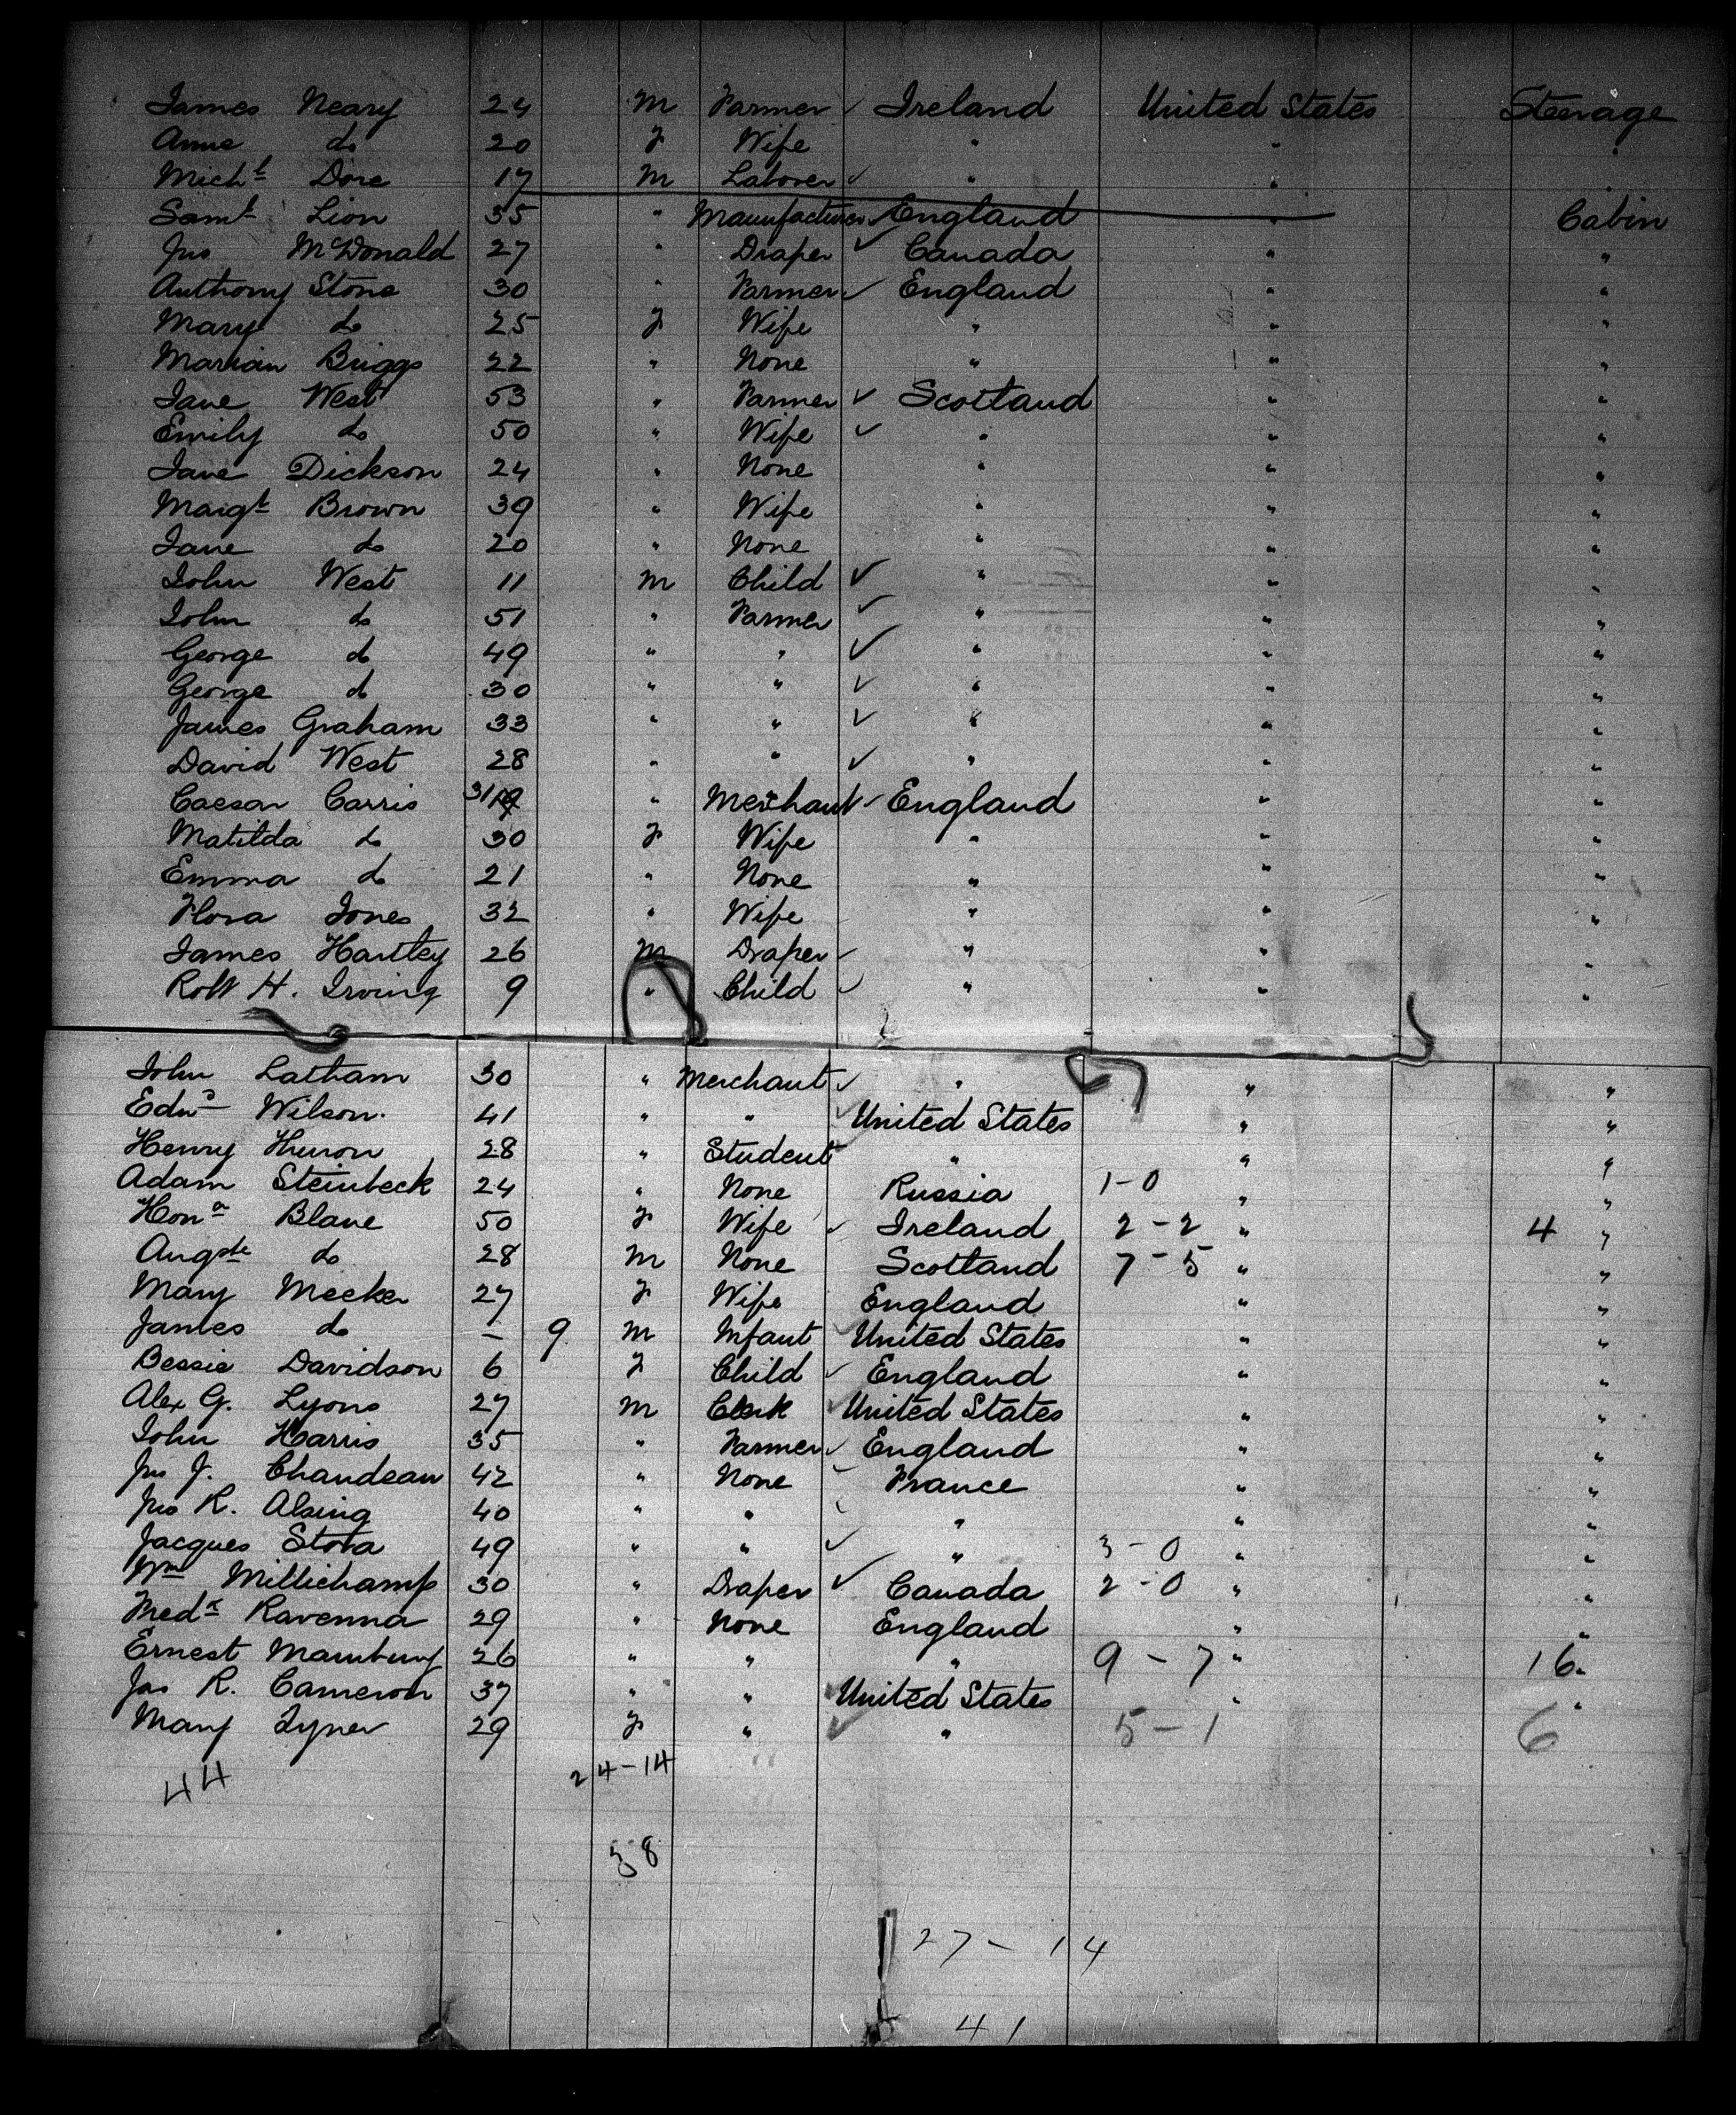 James Neary 24 M Farmer ✓ Ireland United States Steerage
Anne do 20 F Wife " " "
Michl Dore 17 M Laborer ✓ " " "
Saml Lion 35 " Manufacturer ✓ England " Cabin
Jno McDonald 27 " Draper ✓ Canada " "
Anthony Stone 30 " Farmer ✓ England " "
Mary do 25 F Wife " " "
Marian Briggs 22 " None " " "
Jane West 53 " Farmer ✓ Scotland " "
Emily do 50 " Wife ✓ " " "
Jane Dickson 24 " None " " "
Margt Brown 39 " Wife " " "
Jane do 20 " None " " "
John West 11 M Child ✓ " " "
John do 51 " Farmer ✓ " " "
George do 49 " " ✓ " " "
George do 30 " " ✓ " " "
James Graham 33 " " ✓ " " "
David West 28 " " ✓ " " "
Caesar Carris 31 " Merchant ✓ England " "
Matilda do 30 F Wife " " "
Emma do 21 " None " " "
Flora Jones 32 " Wife " " "
James Hartley 26 M Draper ✓ " " "
Robt H. Irving 9 " Child ✓ " " "
John Latham 30 " Merchant ✓ " " "
Edwd Wilson 41 " " ✓ United States " "
Henry Huron 28 " Student " " "
Adam Steinbeck 24 " None Russia 1-0 " "
Hona Blane 50 F Wife ✓ Ireland 2-2 " 4 "
Augste do 28 M None Scotland 7-5 " "
Mary Meeker 27 F Wife England " "
James do - 9 M Infant ✓ United States " "
Bessie Davidson 6 F Child ✓ England " "
Alex G. Lyons 27 M Clerk ✓ United States " "
John Harris 35 " Farmer ✓ England " "
Jno J. Chaudeau 42 " None France " "
Jno R. Alsing 40 " " " " "
Jacques Stora 49 " " ✓ " 3-0 " "
Wm Millichamp 30 " Draper ✓ Canada 2-0 " "
Fredk Ravenna 29 " None England " "
Ernest 26 " " " 9-7 " 16 "
Jas R. Cameron 37 " " ✓ United States " "
Mary Tyner 29 F " ✓ " 5-1 6
44 24-14
38
27-14
41